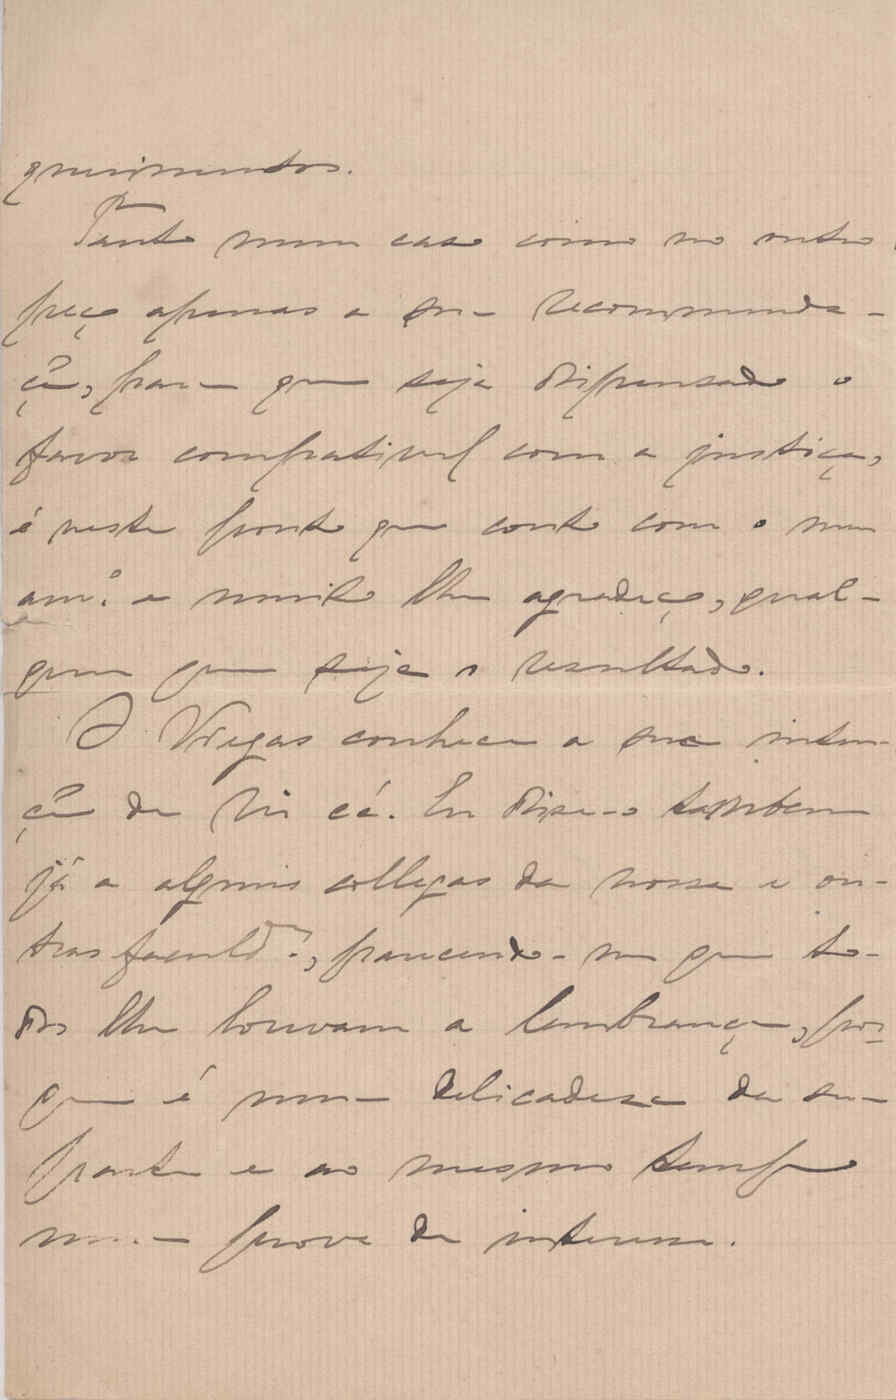 querimentos.
Tanto num caso como no outro,
peço apenas a sua recommenda-
ção, para que seja dispensado o
favor compativel com a justiça,
é neste ponto que conto com o meu
am.º e muito lhe agradeço, qual-
quer que seja o resultado.
O Viegas conhece a sua inten-
ção de vir cá. Eu disse-o tambem
já a alguns collegas da nossa e ou-
tras faculd.es, parecendo-me que to-
dos lhe louvam a lembrança, por-
que é uma delicadesa da sua
parte e ao mesmo tempo
uma prova de interesse.